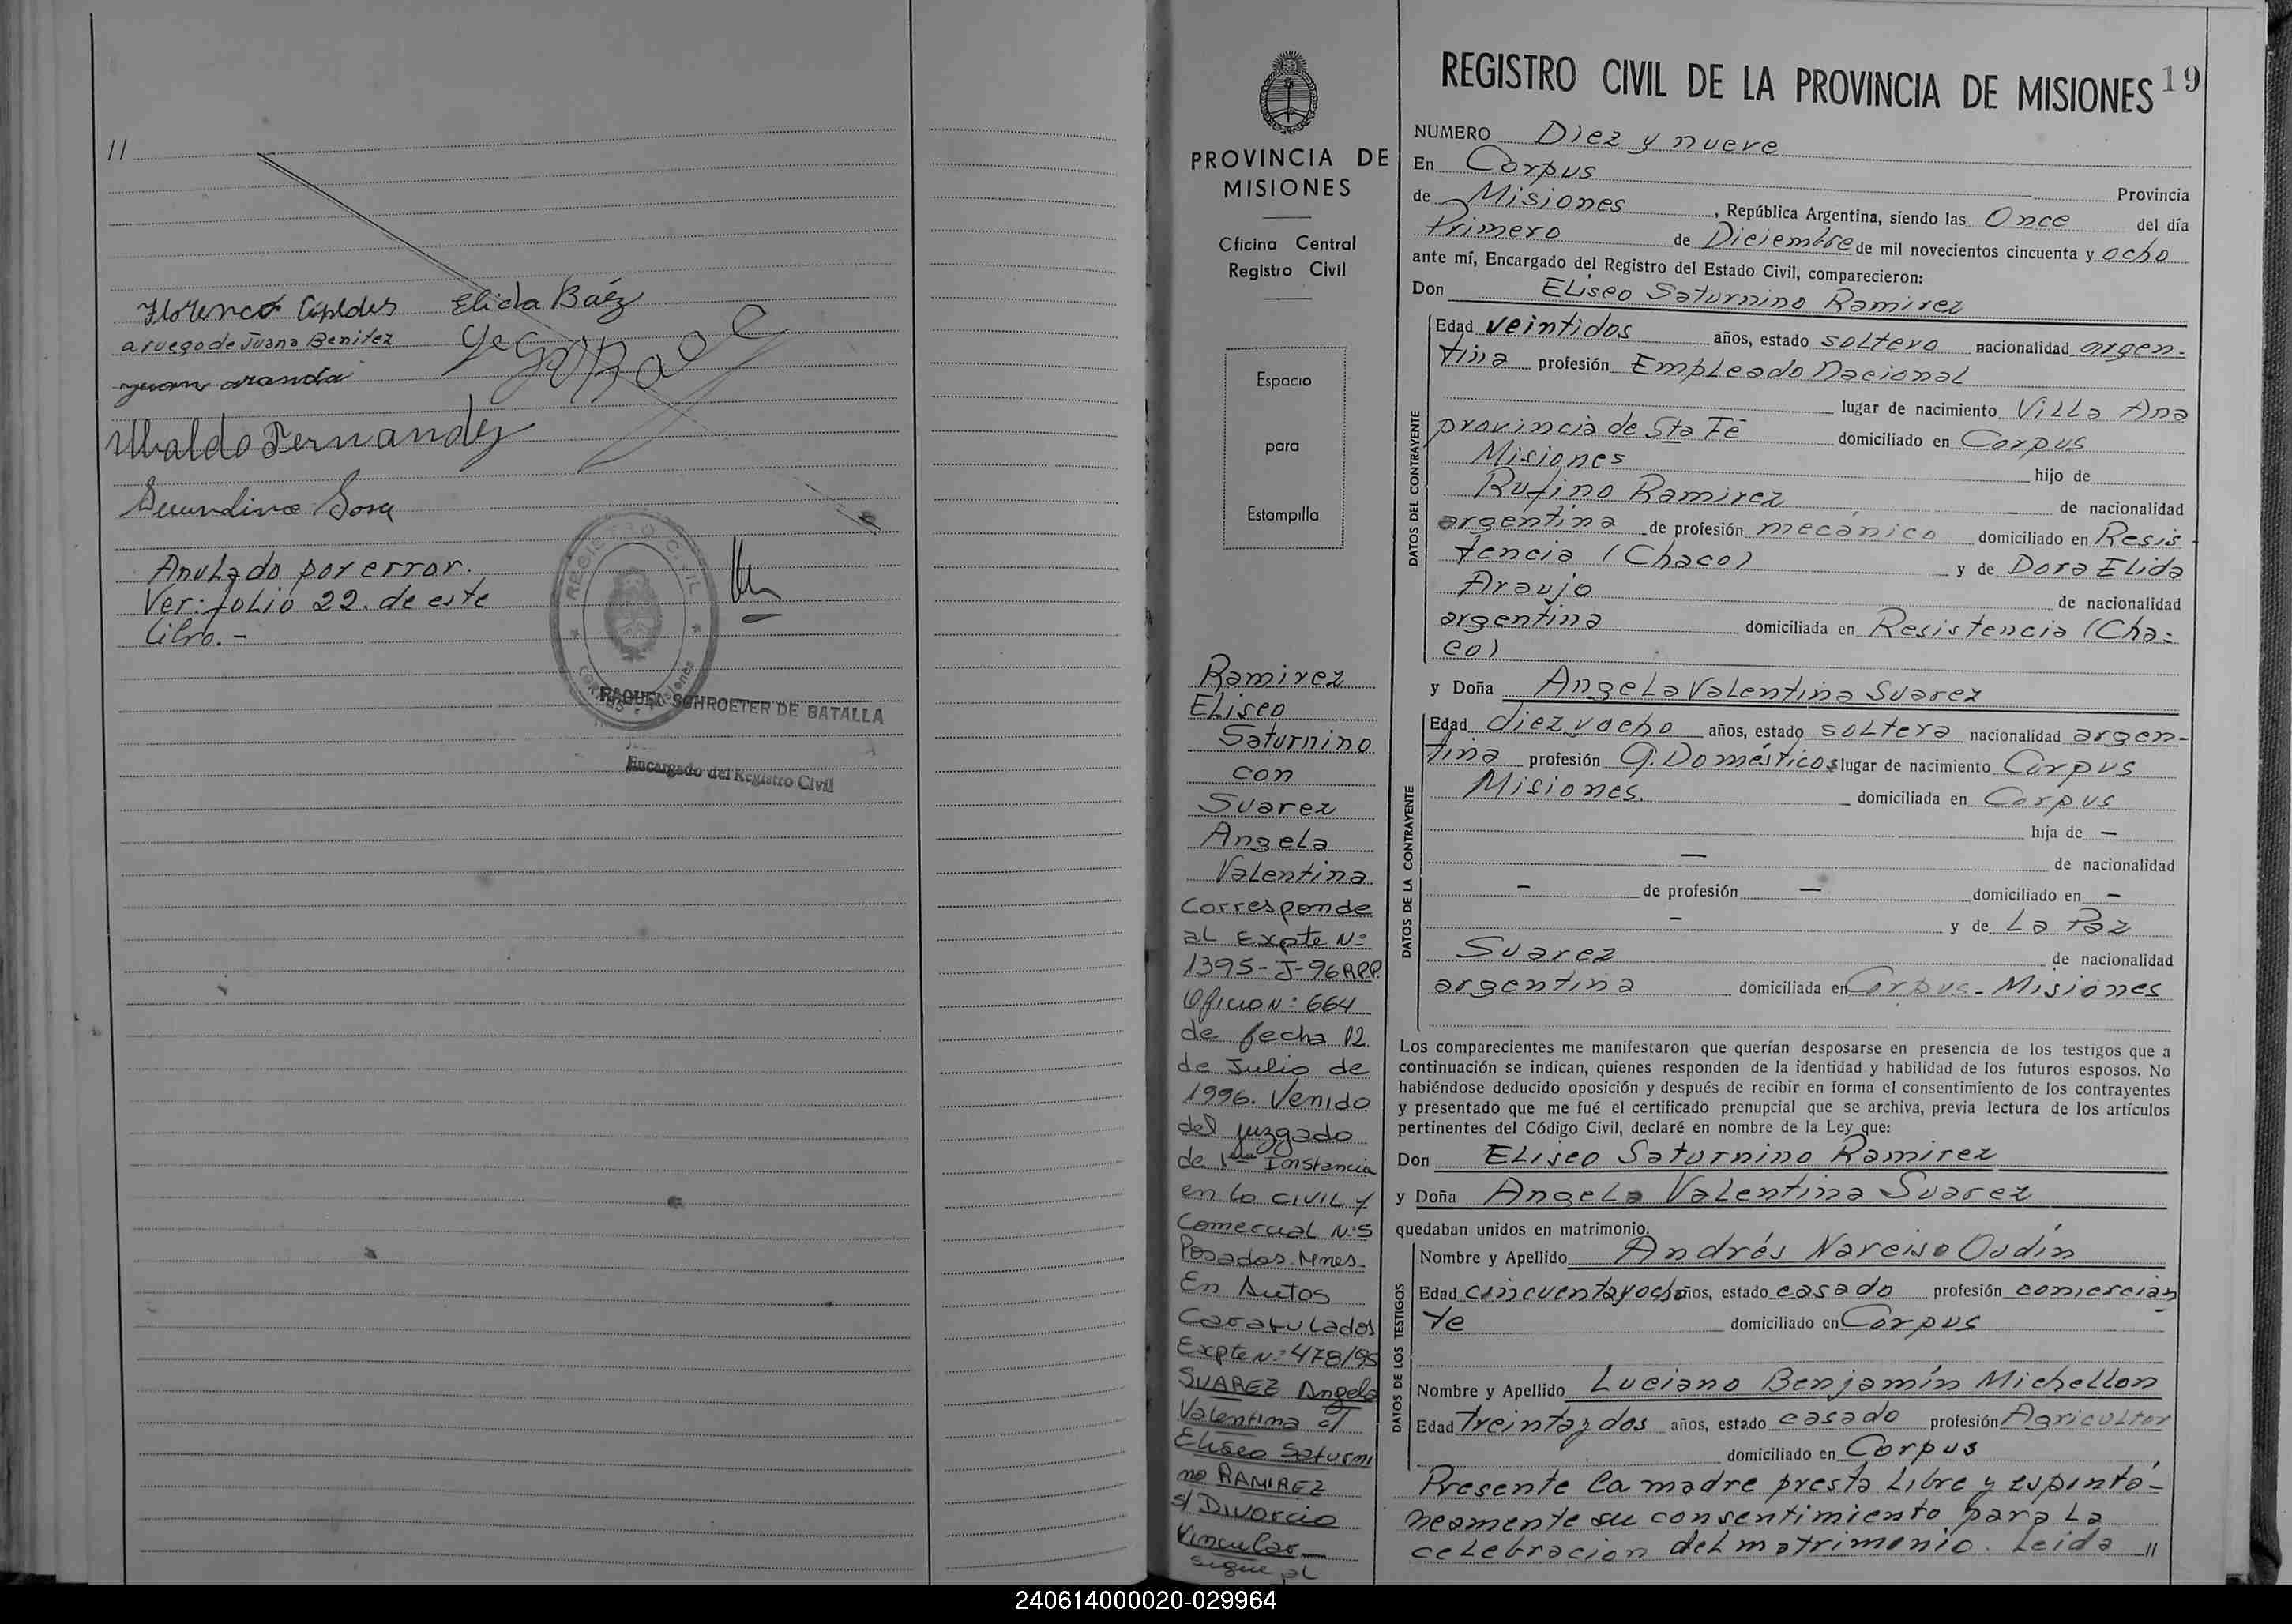 11
Elida Báez
a ruego de Juana Benitez
Juan Aranda
Ubaldo Fernandez
Secundino Sosa
Anulado por error.
Ver: folio 22. de este
libro.-
REGISTRO CIVIL
RAQUEL SCHROETER DE BATALLA
Encargado del Registro Civil
PROVINCIA DE
MISIONES
Oficina Central
Registro Civil
Espacio
para
Estampilla
Ramirez
Eliseo
Saturnino
con
Suarez
Angela
Valentina
Corresponde
al Expte Nº
1395-J-96 RPP.
Oficio Nº: 664
de fecha 12
de Julio de
1996. Venido
del juzgado
de 1era Instancia
en lo civil y
Comercial Nº:5
Posadas-Mnes-
En Autos
Caratulados
Expte Nº: 478/95
SUAREZ Angela
Valentina c/
Eliseo Saturni
no RAMIREZ
s/ Divorcio
Vincular-
sigue al
REGISTRO CIVIL DE LA PROVINCIA DE MISIONES 19
NUMERO Diez y nueve
En Corpus Provincia
de Misiones, República Argentina, siendo las Once del día
Primero de Diciembre de mil novecientos cincuenta y ocho
ante mí, Encargado del Registro del Estado Civil, comparecieron:
Don Eliseo Saturnino Ramirez
DATOS DEL CONTRAYENTE
Edad veintidos años, estado soltero nacionalidad argen-
tina profesión Empleado Nacional
lugar de nacimiento Villa Ana
provincia de Sta Fé domiciliado en Corpus
Misiones hijo de
Rufino Ramirez de nacionalidad
argentina de profesión mecánico domiciliado en Resis
tencia (Chaco) y de Dora Elida
Araujo de nacionalidad
argentina domiciliada en Resistencia (Cha-
co)
y Doña Angela Valentina Suarez
DATOS DE LA CONTRAYENTE
Edad diez y ocho años, estado soltera nacionalidad argen-
tina profesión Q. Domésticos lugar de nacimiento Corpus
Misiones. domiciliada en Corpus
hija de —
— de nacionalidad
— de profesión — domiciliado en —
— y de La Paz
Suarez de nacionalidad
argentina domiciliada en Corpus-Misiones
Los comparecientes me manifestaron que querían desposarse en presencia de los testigos que a
continuación se indican, quienes responden de la identidad y habilidad de los futuros esposos. No
habiéndose deducido oposición y después de recibir en forma el consentimiento de los contrayentes
y presentado que me fué el certificado prenupcial que se archiva, previa lectura de los artículos
pertinentes del Código Civil, declaré en nombre de la Ley que:
Don Eliseo Saturnino Ramirez
y Doña Angela Valentina Suarez
quedaban unidos en matrimonio.
DATOS DE LOS TESTIGOS
Nombre y Apellido Andrés Narciso Oudín
Edad cincuenta y ocho años, estado casado profesión comercian
te domiciliado en Corpus
Nombre y Apellido Luciano Benjamín Michellon
Edad treinta y dos años, estado casado profesión Agricultor
domiciliado en Corpus
Presente la madre presta libre y espontá-
neamente su consentimiento para la
celebracion del matrimonio. Leida 11
240614000020-029964